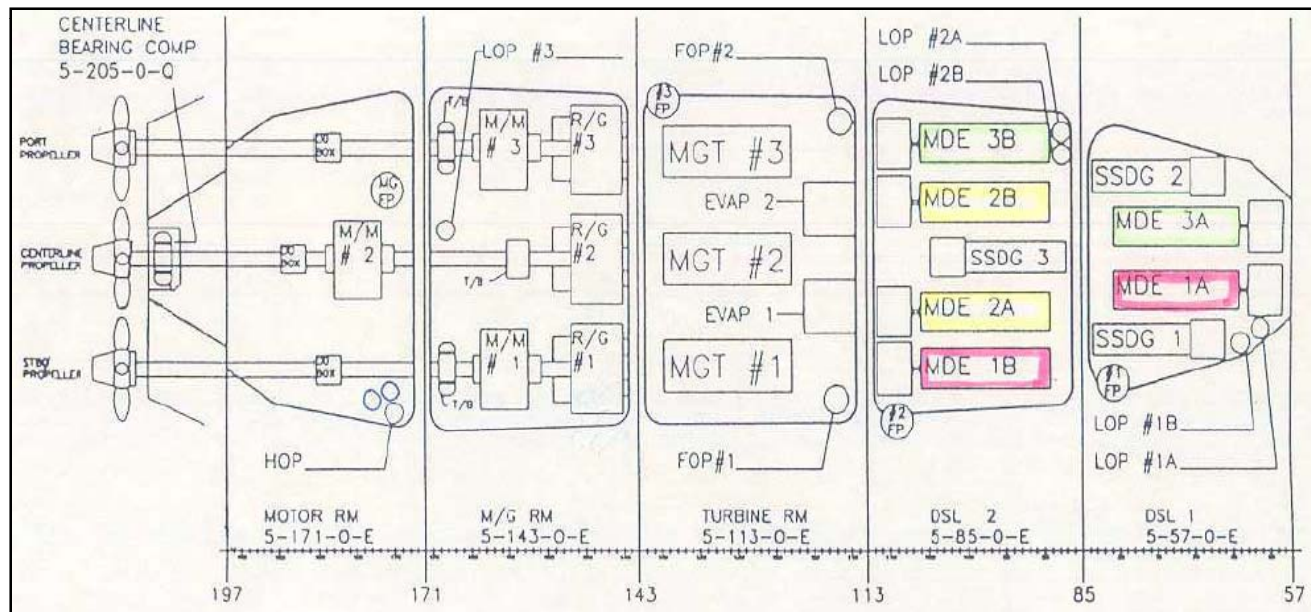 CENTERLINE
BEARING COMP
5-205-0-Q
PORT
PROPELLER
CENTERLINE
PROPELLER
STBD
PROPELLER
OD
BOX
MG
FP
M/M
# 2
OD
BOX
OD
BOX
HOP
MOTOR RM
5-171-0-E
LOP #3
T/B
M/M
# 3
R/G
#3
R/G
#2
T/B
M/M
# 1
R/G
#1
T/B
M/G RM
5-143-0-E
FOP#2
#3
FP
MGT #3
EVAP 2
MGT #2
EVAP 1
MGT #1
FOP#1
TURBINE RM
5-113-0-E
LOP #2A
LOP #2B
MDE 3B
MDE 2B
SSDG 3
MDE 2A
MDE 1B
#2
FP
DSL 2
5-85-0-E
SSDG 2
MDE 3A
MDE 1A
SSDG 1
#1
FP
LOP #1B
LOP #1A
DSL 1
5-57-0-E
197
171
143
113
85
57